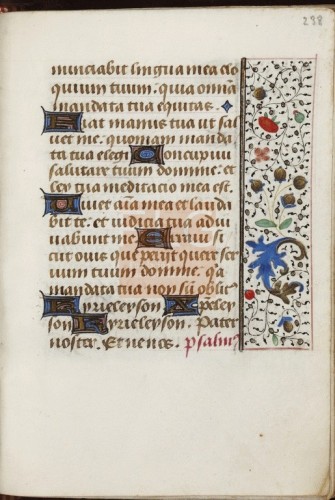 238
nunciabit lingua mea elo
quium tuum. quia omnia
mandata tua equitas.
Fiat manus tua ut sal
vet me. quoniam manda
ta tua elegi. Concupivi
salutare tuum domine. et
lex tua meditacio mea est.
Vivet aima mea et laudā
bit te. et iudicia tua adiu
vabunt me. Erravi si
cut ovis que periit quere ser
vum tuum domine. qa
mandata tua non sū oblit
Kyrieleyson Xpeley
son Kyrieleyson. Pater
noster. Et ne nos. psalm